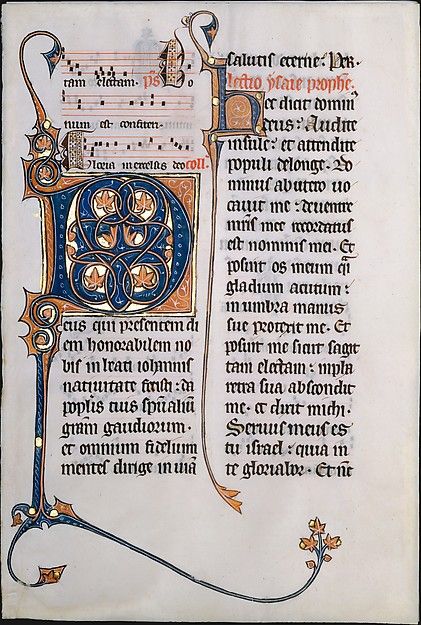 tam electam. ps Bo
num est confiteri
Gloria in excelsis deo coll.
Deus qui presentem di
em honorabilem no
bis in beati iohannis
natiuitate fecisti: da
poplis tuis spualiu
gram gaudiorum.
et omnium fidelium
mentes dirige in uiā
salutis eterne. Per.
lectio ysaie prophe.
Hec dicit domin
deus: Audite
insule: et attendite
populi de longe. Do
minus ab utero uo
cauit me: de uentre
mris mee recordatus
est nominis mei. Et
posuit os meum qi
gladium acutum:
in umbra manus
sue protexit me. Et
posuit me sicut sagit
tam electam: in pha
retra sua abscondit
me. et dixit michi.
Seruus meus es
tu israel: quia in
te gloriabor. Et nc